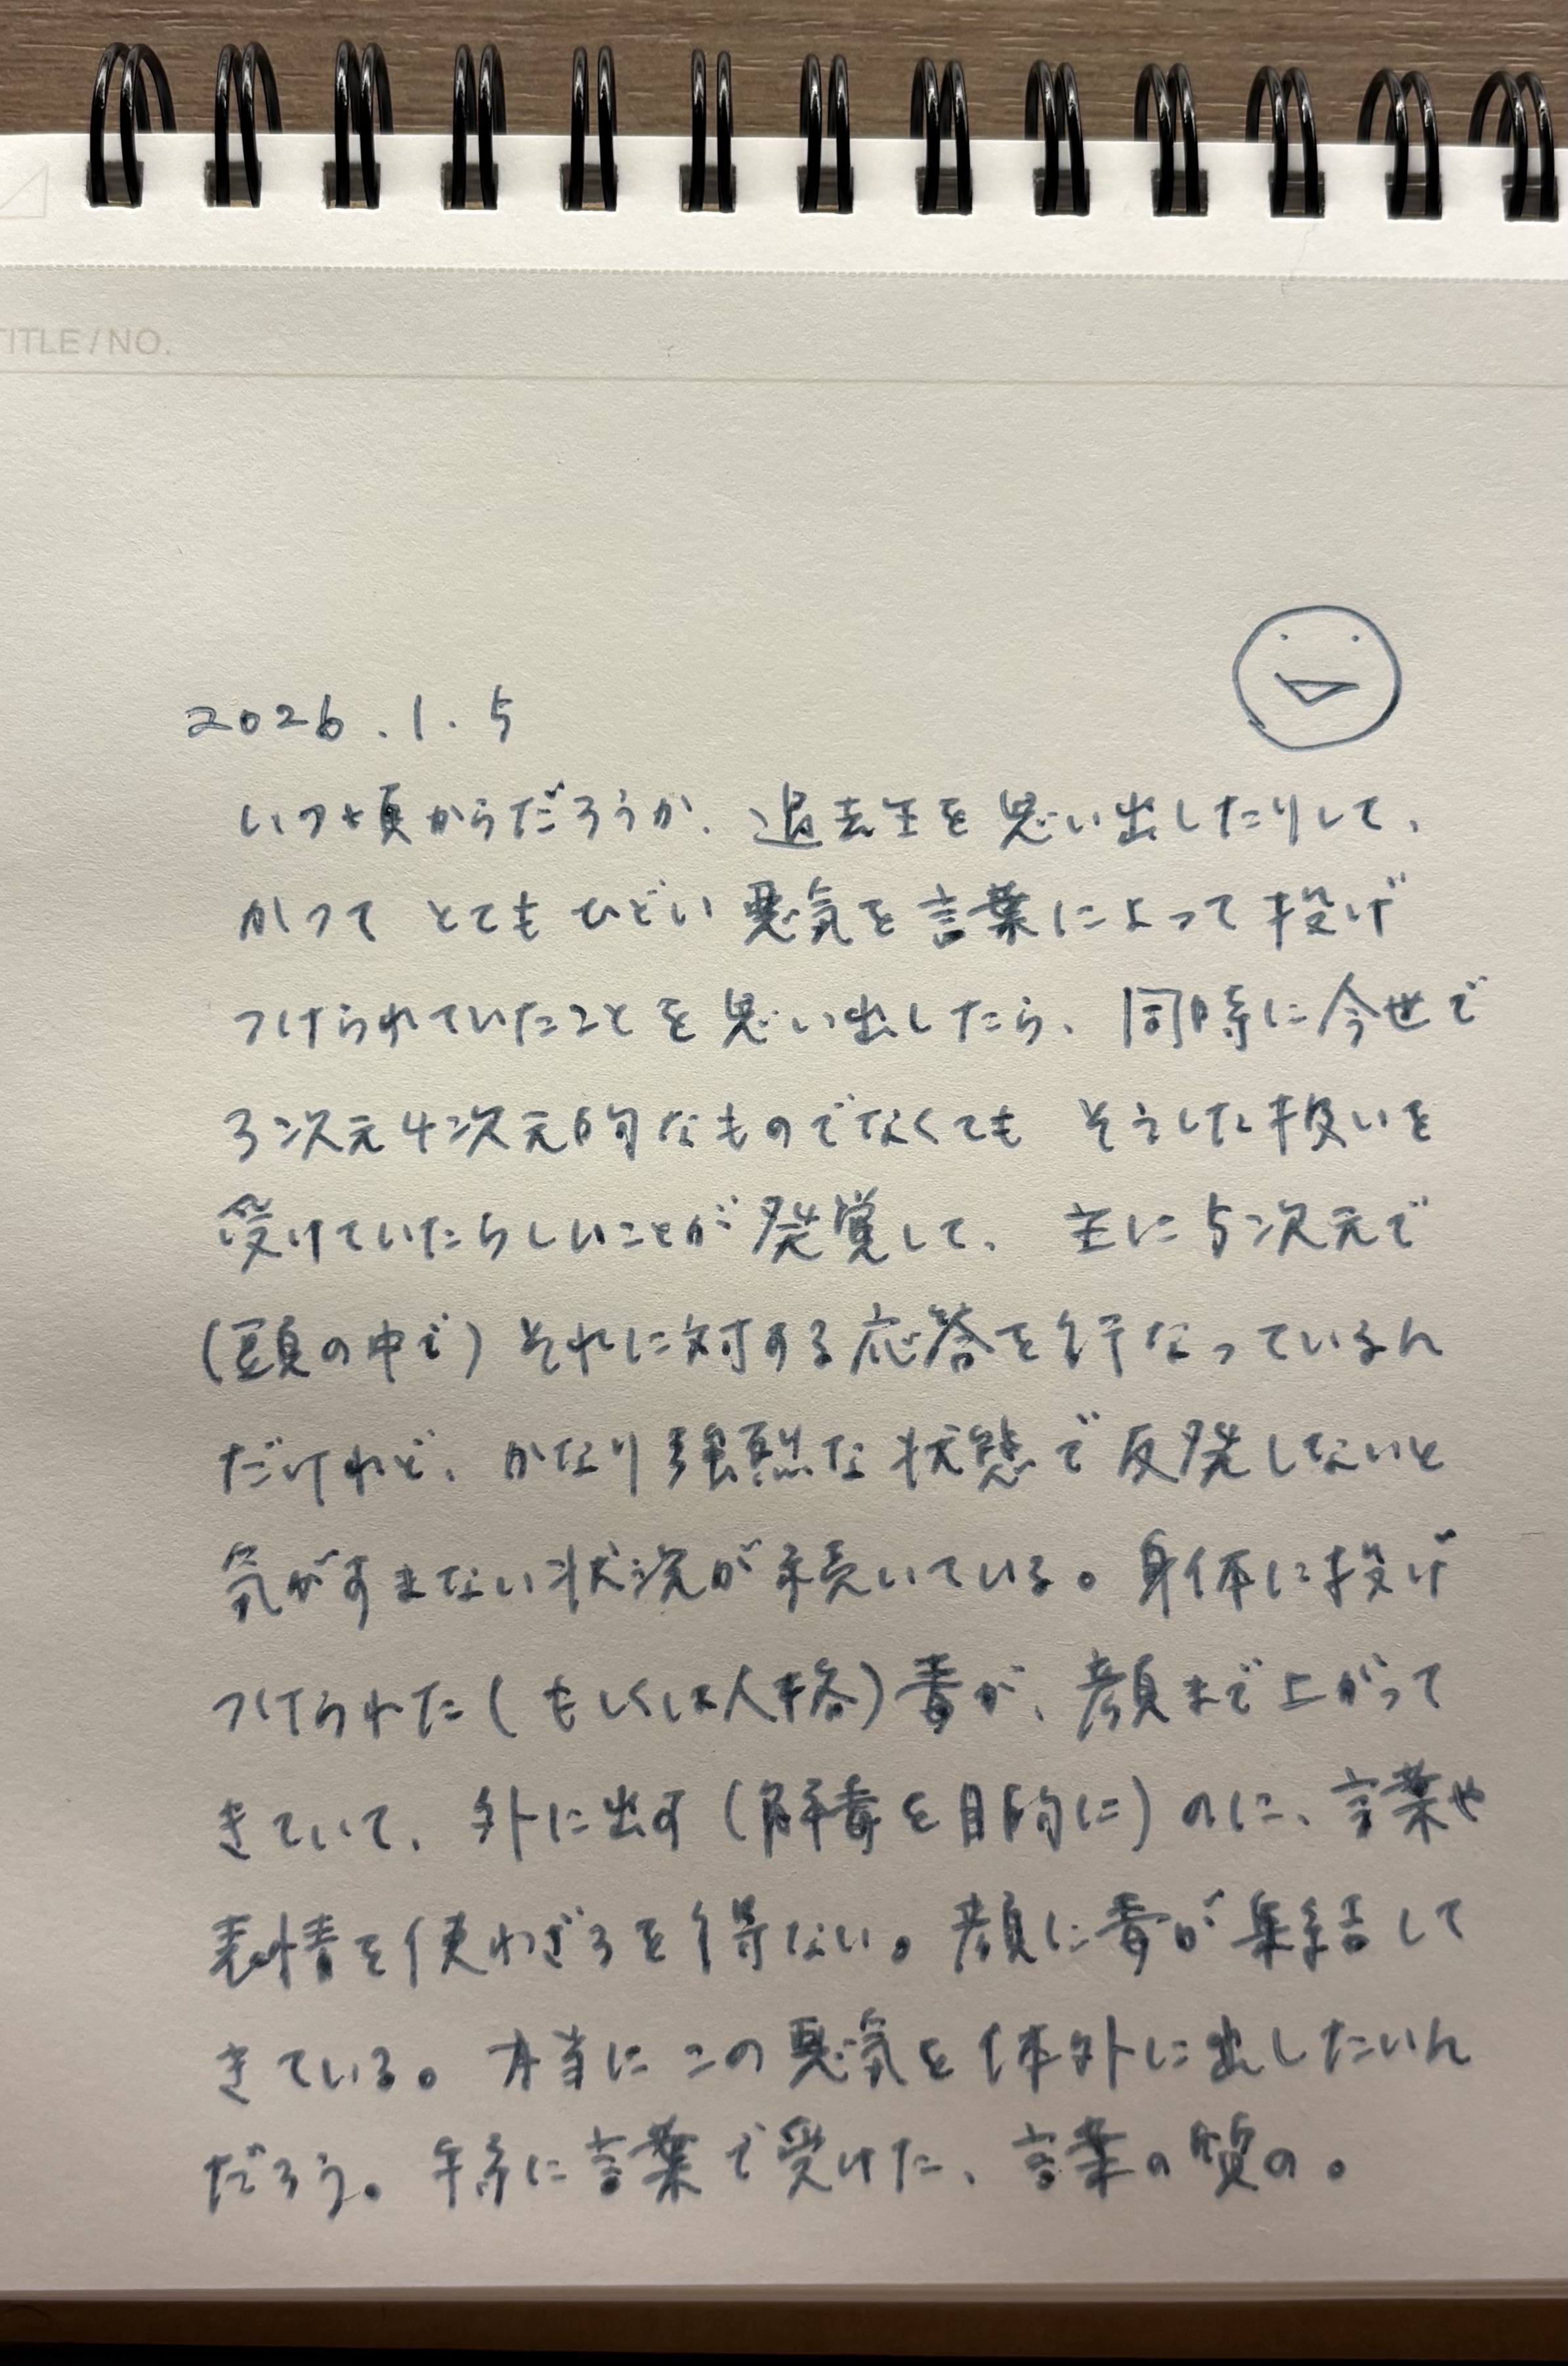 TITLE/NO.
2026.1.5
いつ頃からだろうか、過去生を思い出したりして、
かつて とても ひどい 悪気を言葉によって投げ
つけられていたことを思い出したら、同時に今世で
3次元4次元的なものでなくても そうした扱いを
受けていたらしいことが発覚して、主に5次元で
(頭の中で)それに対する応答を行なっているん
だけれど、かなり強烈な状態で反発しないと
気がすまない状況が続いている。身体に投げ
つけられた(もしくは人格)毒が、顔まで上がって
きていて、外に出す(解毒を目的に)のに、言葉や
表情を使わざろを得ない。顔に毒が集結して
きている。本当にこの悪気を体外に出したいん
だろう。特に言葉で受けた、言葉の質の。